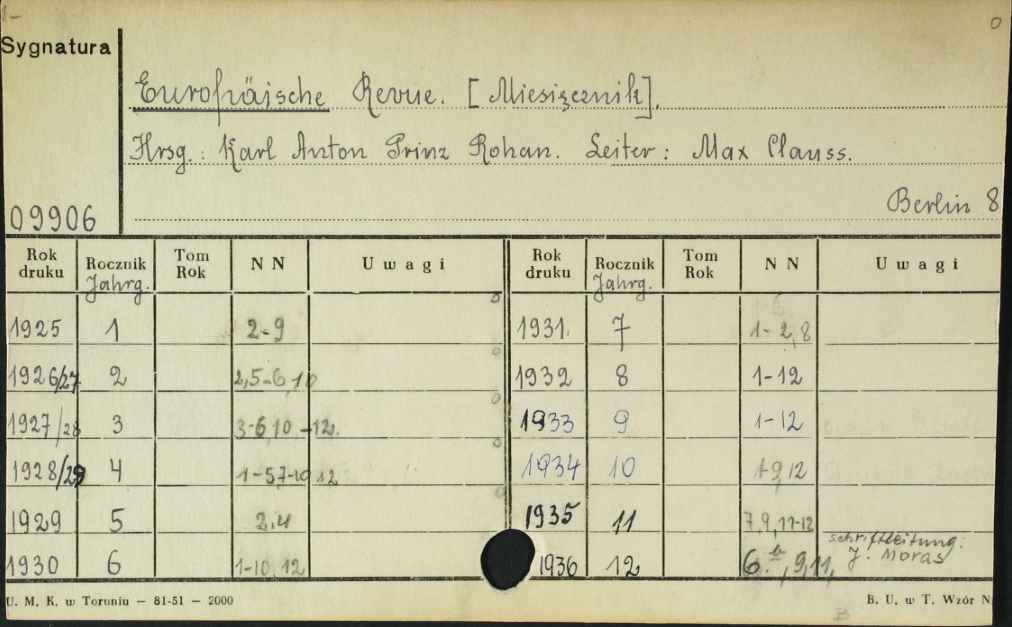 Sygnatura
0
Europäische Revue. [Miesięcznik].
Hrsg.: Karl Anton Prinz Rohan. Leiter: Max Clauss.
09906
Berlin 8
Rok druku Rocznik Jahrg. Tom Rok NN Uwagi Rok druku Rocznik Jahrg. Tom Rok NN Uwagi
1925 1 2-9 1931. 7 1-2,8
1926/27 2 2,5-6,10 1932 8 1-12
1927/28 3 3-6,10-12. 1933 9 1-12
1928/29 4 1-5,7-10,12 1934 10 1-9,12
1929 5 2,4 1935 11 7,9,11-12
1930 6 1-10,12 1936 12 6.,9,11, Schriftleitung: J. Moras
U. M. K. w Toruniu — 81-51 — 2000
B. U. w T. Wzór N